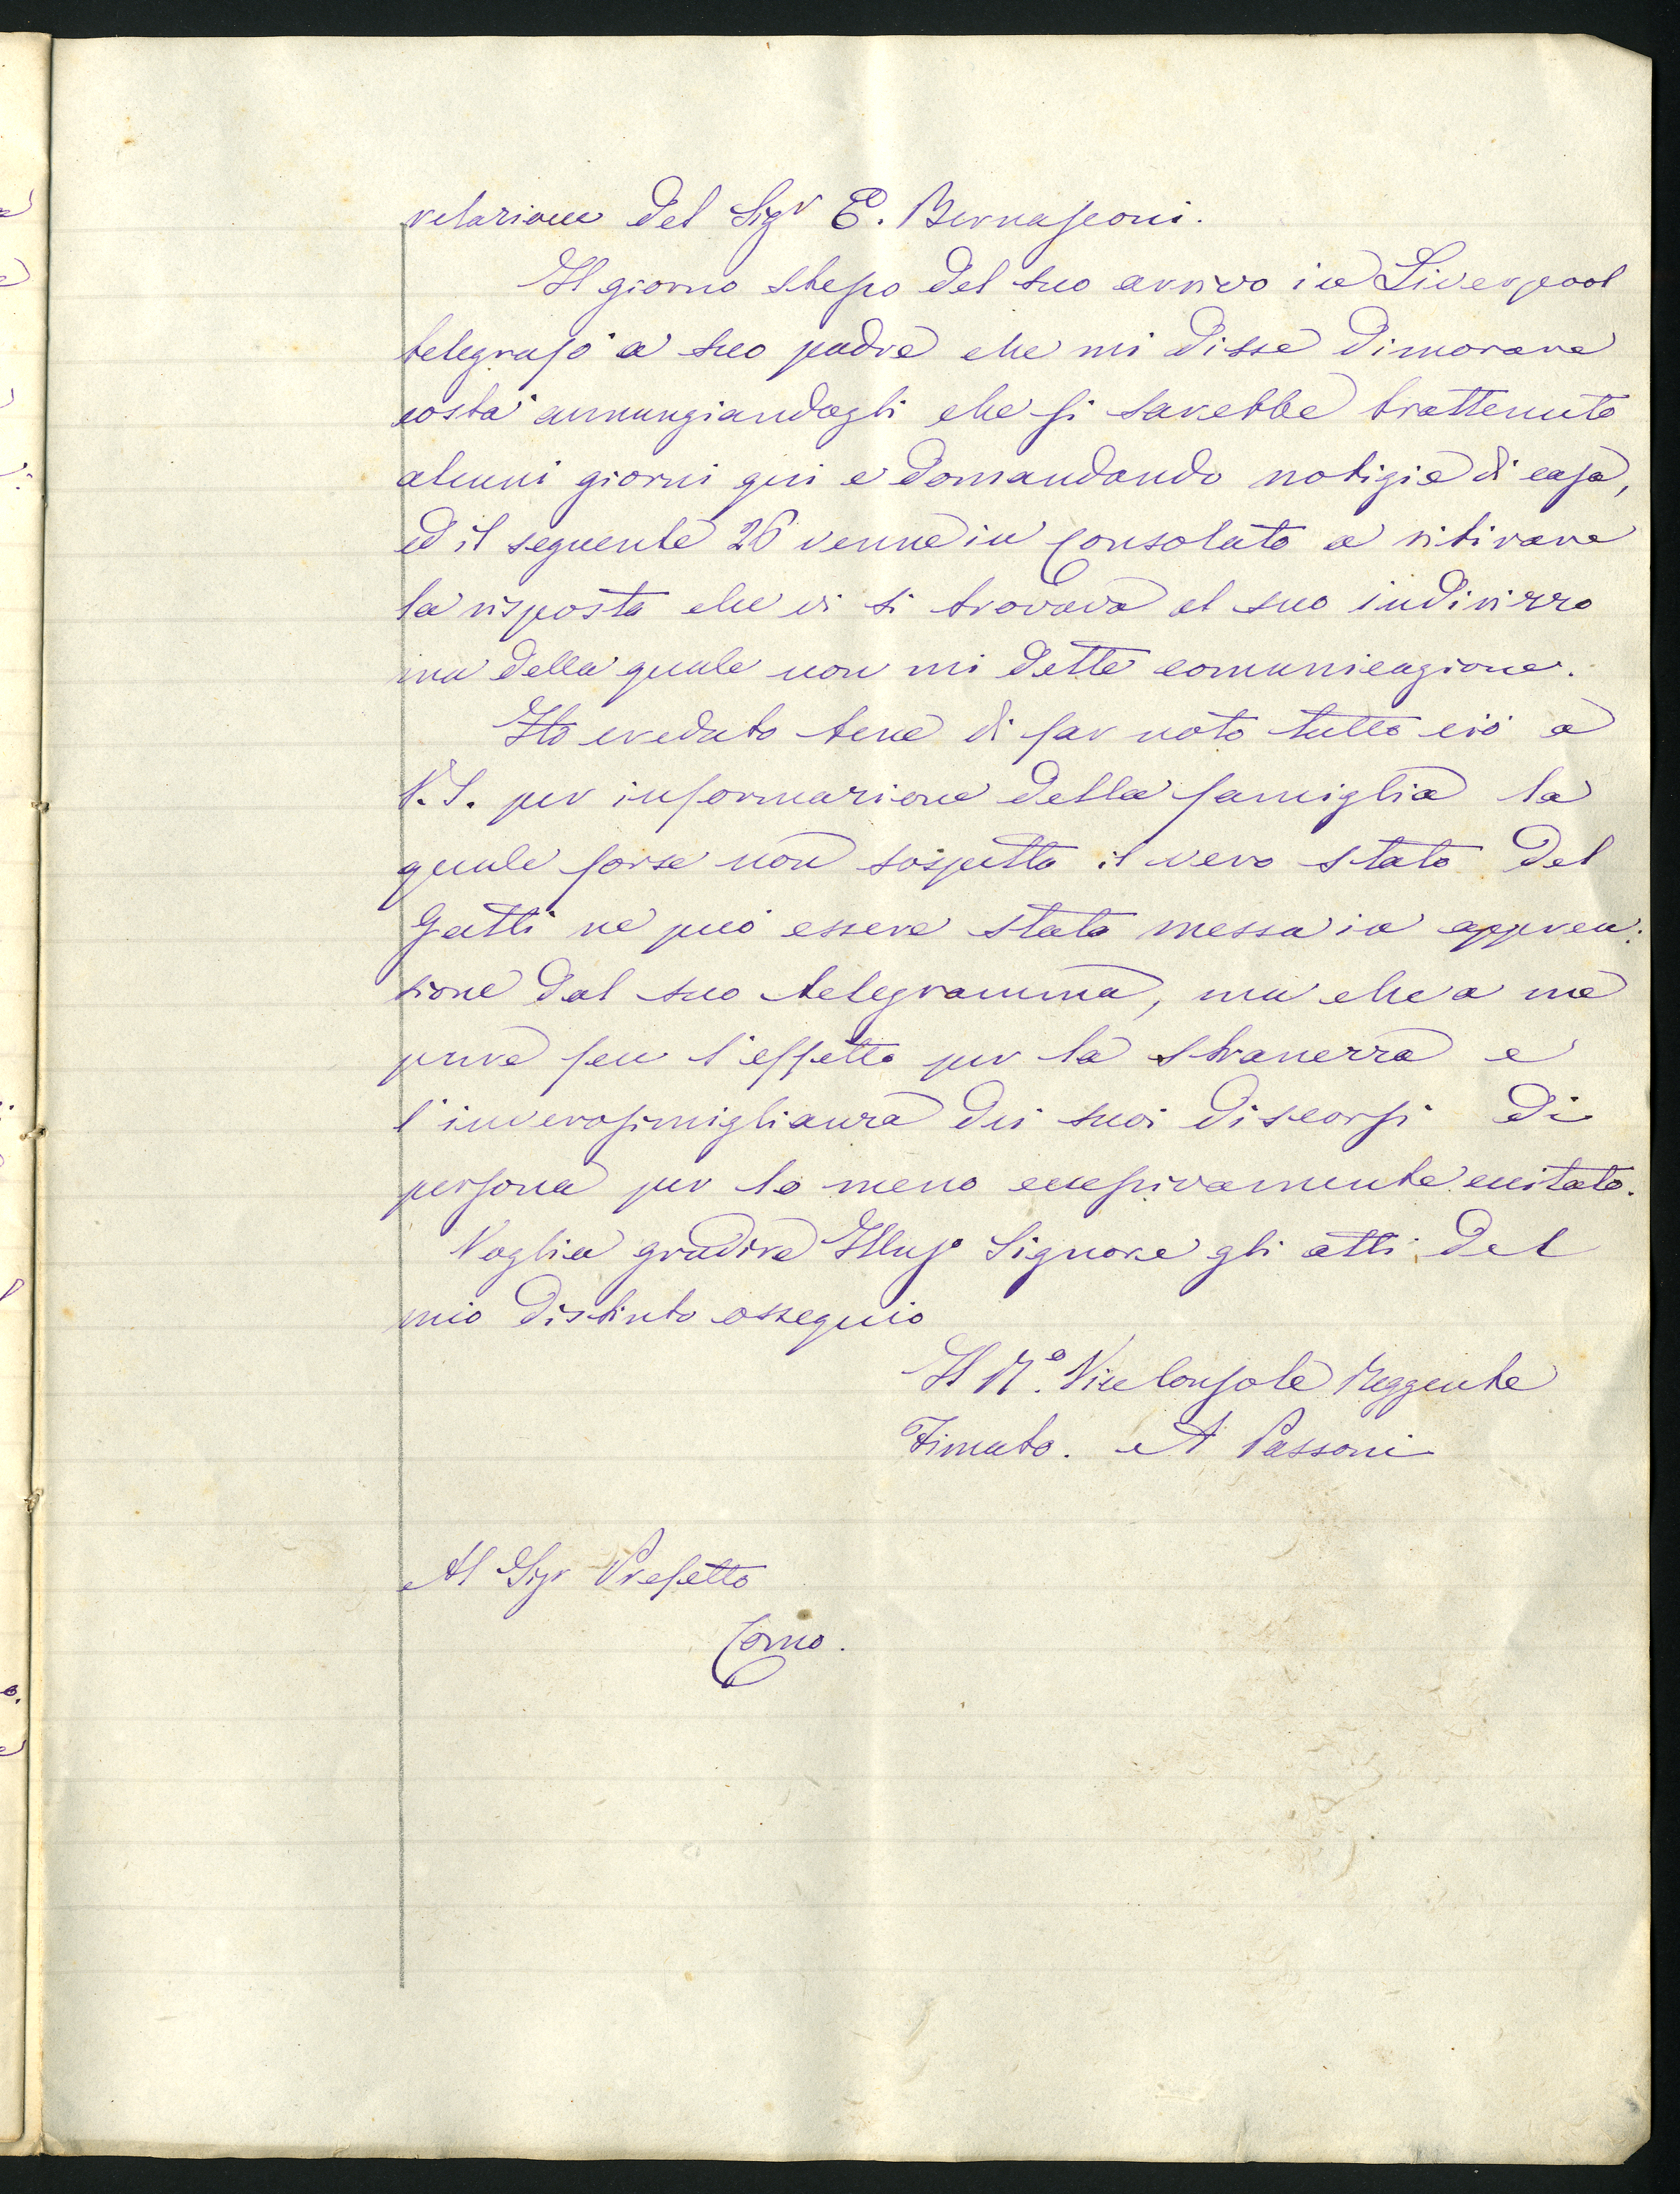 relazione del Sigr E. Bernasconi.
Il giorno stesso del suo arrivo in Liverpool
telegrafò a suo padre che mi disse dimorare
costà annunziandogli che si sarebbe trattenuto
alcuni giorni qui e domandando notizie di casa,
ed il seguente 26 venne in Consolato a ritirare
la risposta che vi si trovava al suo indirizzo
ma della quale non mi dette comunicazione.
Ho creduto bene di far noto tutto ciò a
V.S. per informazione della famiglia la
quale forse non sospetta il vero stato del
Gatti ne può essere stata messa in appren:
sione dal suo telegramma, ma che a me
pure fece l'effetto per la stranezza e
l'inverosimiglianza dei suoi discorsi di
persona per lo meno eccessivamente eccitata.
Voglia gradire Illusº Signore gli atti del
mio distinto ossequio
Il Rº. Vice Console Reggente
Firmato. A Passoni
Al Sigr Prefetto
Como.